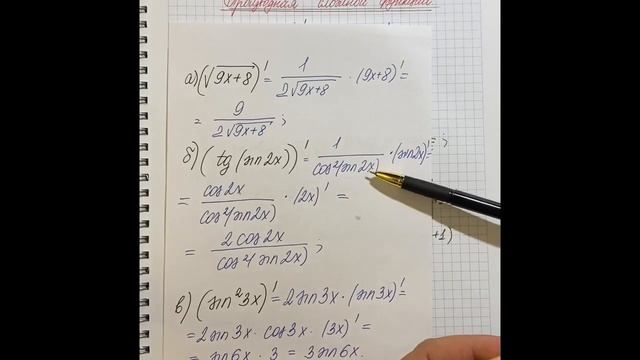 Производная сложной функции
а) (√9x+8)' = 1/(2√9x+8) · (9x+8)' =
= 9/(2√9x+8) ;
б) (tg(sin2x))' = 1/(cos²(sin2x)) · (sin2x)' = ;
= cos2x/(cos²(sin2x)) · (2x)' =
= 2cos2x/(cos²(sin2x)) ;
+1)
в) (sin²3x)' = 2sin3x · (sin3x)' =
= 2sin3x · cos3x · (3x)' =
= sin6x · 3 = 3sin6x.